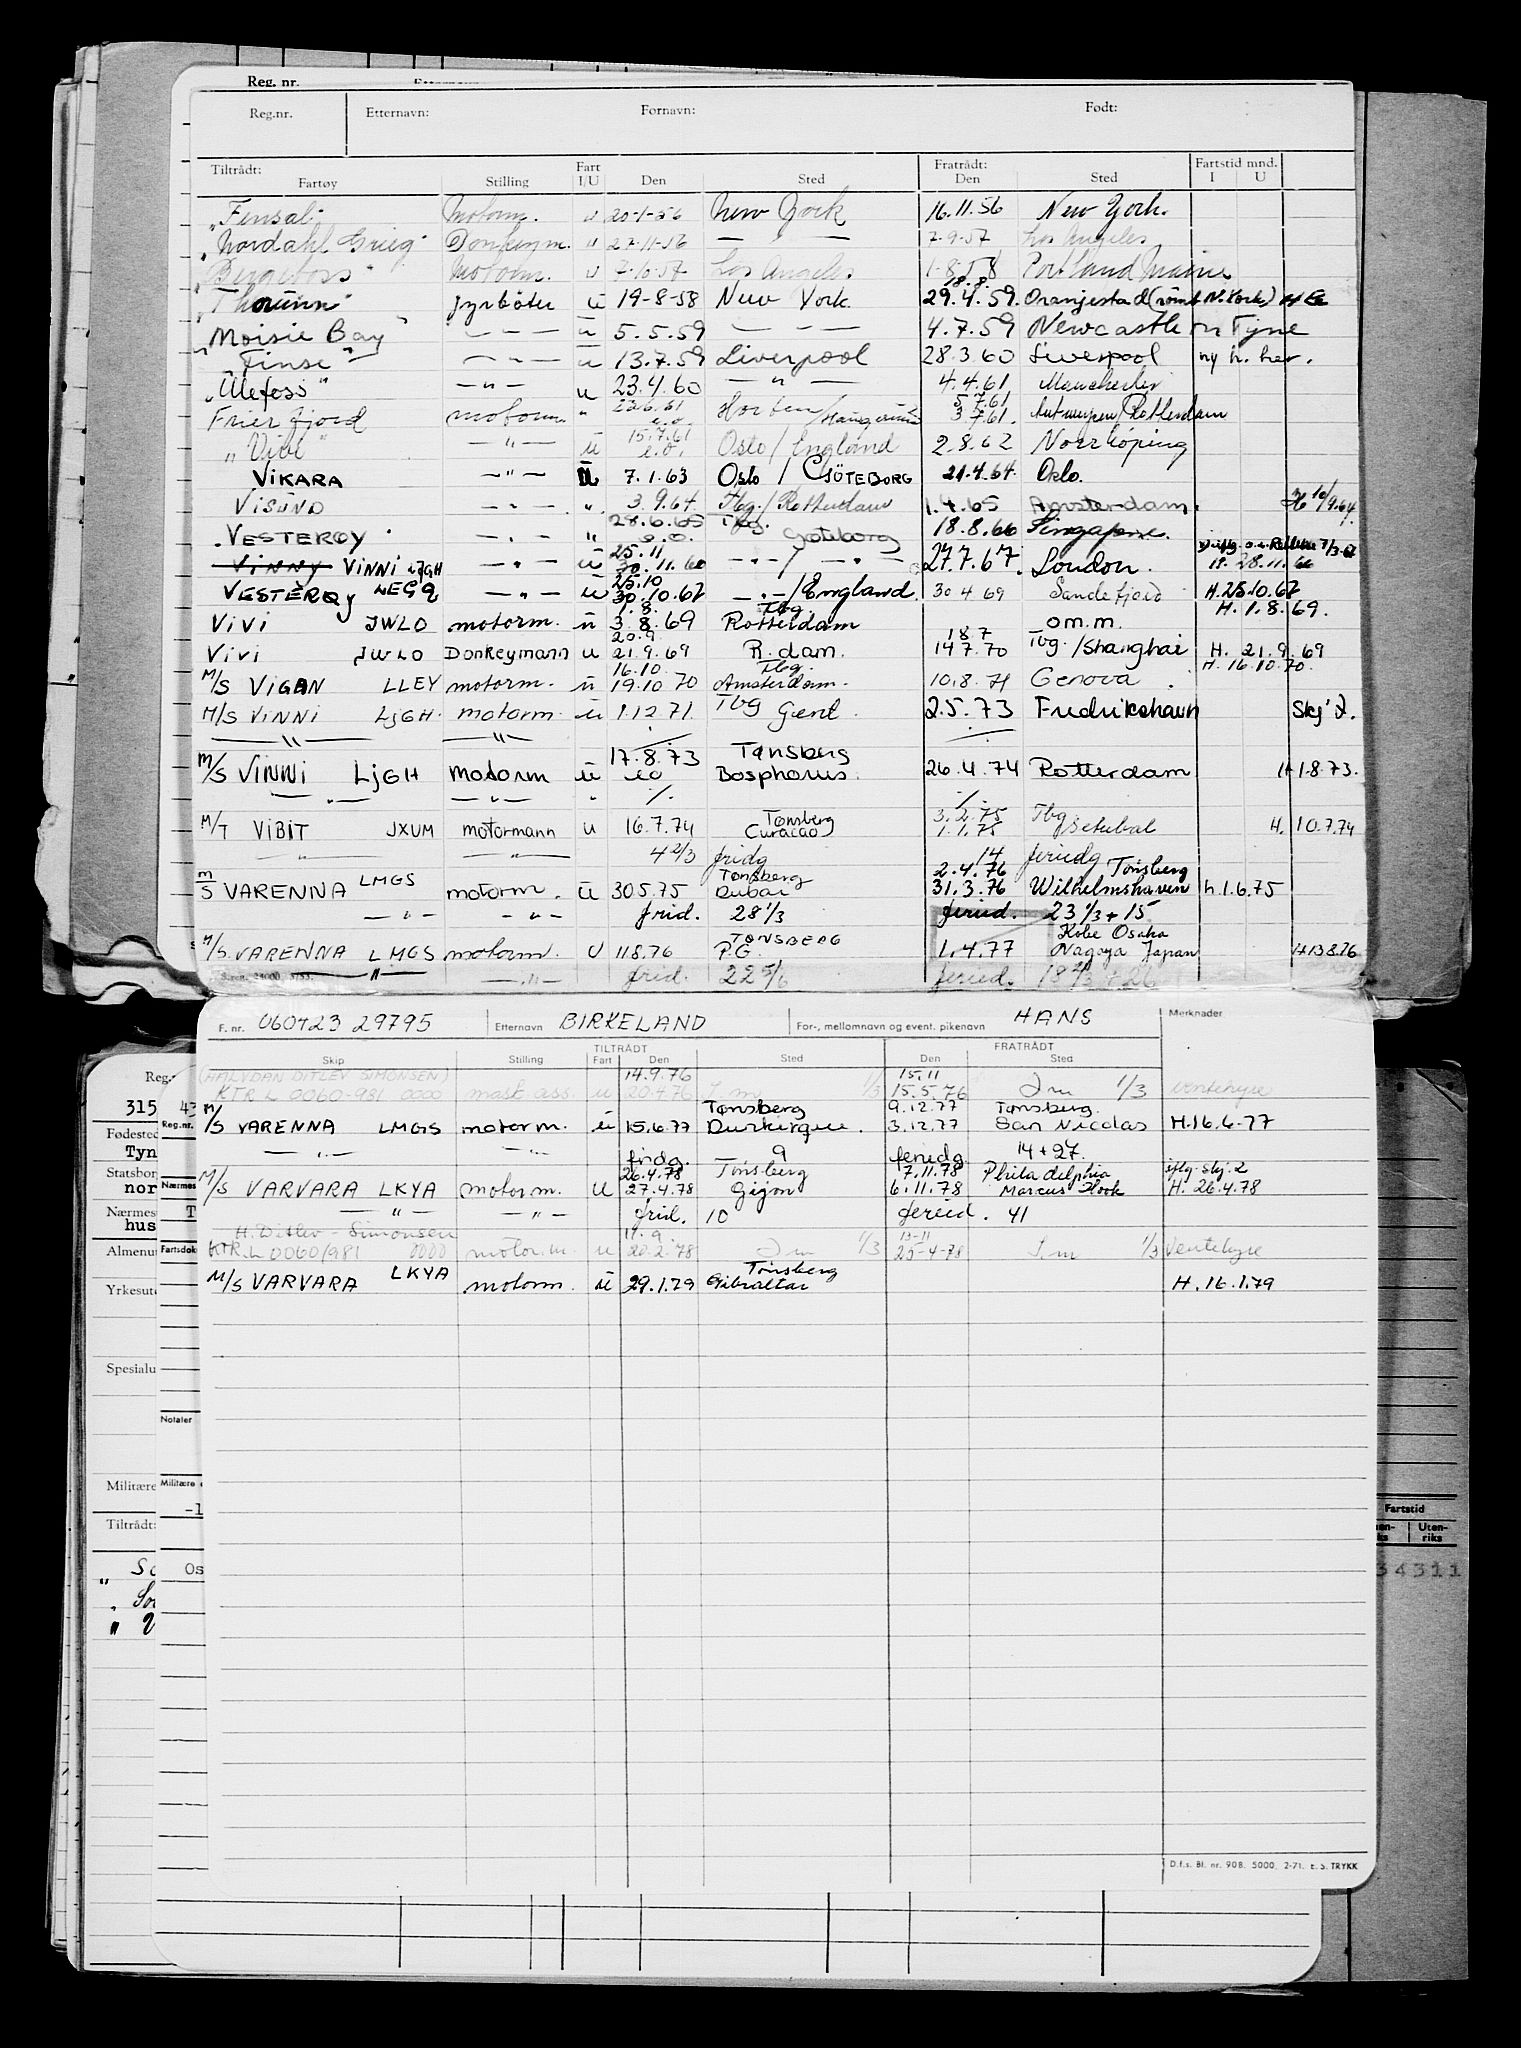 Reg. nr.
Reg.nr. Etternavn: Fornavn: Født:
Tiltrådt: Fart Fratrådt: Fartstid mnd.
Fartøy Stilling I/U Den Sted Den Sted I U
"Finsal" Motorm. u 20-1-56 New York 16.11.56 New York.
"Nordahl Grieg" Donkeym. u 27-11-56 — " — 7-9-57 Los Angeles
"Bergefors" Motorm. u 7-10-57 Los Angeles 1-8-58 Portland Maine
18.8.
"Thorunn" fyrbøter u 19-8-58 New York 29.4.59. Oranjestad (rømt N.York)
"Moisie Bay" — " — u 5.5.59 — " — 4.7.59 Newcastle on Tyne
"Finse" — " — u 13.7.59 Liverpool 28.3.60 Liverpool ny h. her.
"Ulefoss" — " — u 23.4.60 — " — 4.4.61 Manchester
23.6.61 5.7.61
Frierfjord motorm " e.o. Horten / 3.7.61. Antwerpen/Rotterdam
15.7.61
"Vibi" — " — u e.o. Oslo / England 2.8.62 Norrköping
VIKARA — " — u 7.1.63 Oslo / GÖTEBORG 21.4.64. Oslo.
VISUND — " — " 3.9.64. Tbg. / Rotterdam 1.4.65 Amsterdam. 10/9.64
28.6.65 Tbg.
VESTERØY — " — " e.o. Göteborg 18.8.66 Singapore.
25.11
VINNY VINNI LJGH — " — u 30.11.66 — " — / — " — 27.7.67. London. H. 28.11.66
25.10
VESTERØY LEGQ — " — u 30.10.67 — " — / England 30 4 69 Sandefjord H.25.10.67
1.8. Tbg. H. 1.8.69.
VIVI JWLO motorm. u 3.8.69 Rotterdam om.m.
20.9. 18 7
VIVI JWLO Donkeymann u 21.9.69 R.dam. 14 7.70 Tbg. / Shanghai H. 21.9.69
16.10. Tbg. H. 16.10.70.
M/S VIGAN LLEY motorm. u 19.10 70 Amsterdam. 10.8.71 Genova
M/S VINNI LJGH. motorm u 1.12.71. Tbg Gent. 2.5.73 Fredrikshavn Skj 2.
— " — — " —
17.8.73 Tønsberg
M/S VINNI LJGH motorm u eo Bosphorus. 26.4.74 Rotterdam H 1.8.73.
— " — — " — " ./. ./.
3.2.75 Tbg
M/T VIBIT JXUM motormann u 16.7.74 Tønsberg Curacao 1.1.75 Setubal H. 10.7.74
— " — — " — 4 2/3 fridg 14 feriedg
Tønsberg 2.4.76 Tønsberg
M/S VARENNA LMGS motorm. u 30.5.75 Dubai 31.3.76 Wilhelmshaven h.1.6.75
— " — — " — frid. 28 1/3 feried. 23 1/3 + 15
TØNSBERG Kobe Osaka
M/S. VARENNA LMGS motorm. U 11.8.76 P.G. 1.4.77 Nagoya Japan H 13.8.76
— " — — " — frid. 22 5/6 feried. 18 2/3 + 26
F. nr. 060423 29795 Etternavn BIRKELAND For-, mellomnavn og event. pikenavn HANS Merknader
TILTRÅDT FRATRÅDT
Skip Stilling Fart Den Sted Den Sted
(HALVDAN DITLEV SIMONSEN) 14.9.76 15.11
KTR L 0060-981 0000 mask.ass. u 20.4.76 1/3 15.5.76 1/3 ventehyre
Tønsberg 9.12.77 Tønsberg.
M/S VARENNA LMGS motorm. u 15.6.77 Dunkirque. 3.12.77 San Nicolas H.16.6.77
— " — — " — fridg. 9 feriedg. 14 + 27.
26.4.78 Tønsberg 7.11.78 Philadelphia iflg. skj. 2
M/S VARVARA LKYA motorm. U 27.4.78 Gijon 6.11.78 Marcus Hook H. 26.4.78
— " — — " — frid. 10 feried. 41
H. Ditlev-Simonsen 13-11
KTR. L 0060/981 0000 motor.m. u 20.2.78 1/3 25-4-78 1/3 Ventehyre
Tønsberg
M/S VARVARA LKYA motorm. u 29.1.79 Gibraltar H. 16.1.79
D.f.s. Bl. nr. 908. 5000. 2-71. E. S. TRYKK
Reg.
315
Fødested
Tyn
Nærmes
hus
Yrkesut
Spesialu
Notater
Militære
Tiltrådt:
Os
Fartstid
Uten-
riks
34311